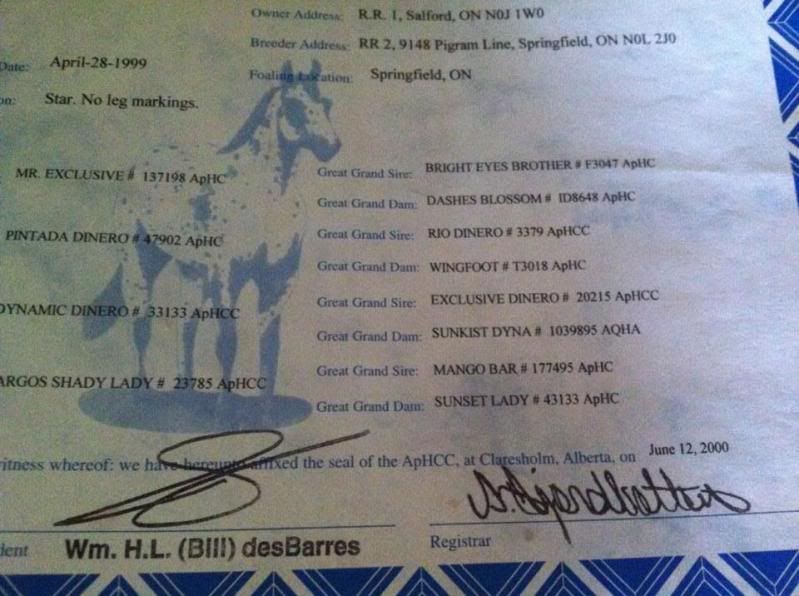 Owner Address: R.R. 1, Salford, ON N0J 1W0
Breeder Address: RR 2, 9148 Pigram Line, Springfield, ON N0L 2J0
Date: April-28-1999
Foaling Location: Springfield, ON
on: Star. No leg markings.
MR. EXCLUSIVE # 137198 ApHC
Great Grand Sire: BRIGHT EYES BROTHER # F3047 ApHC
Great Grand Dam: DASHES BLOSSOM # ID8648 ApHC
PINTADA DINERO # 47902 ApHC
Great Grand Sire: RIO DINERO # 3379 ApHCC
Great Grand Dam: WINGFOOT # T3018 ApHC
DYNAMIC DINERO # 33133 ApHCC
Great Grand Sire: EXCLUSIVE DINERO # 20215 ApHCC
Great Grand Dam: SUNKIST DYNA # 1039895 AQHA
ARGOS SHADY LADY # 23785 ApHCC
Great Grand Sire: MANGO BAR # 177495 ApHC
Great Grand Dam: SUNSET LADY # 43133 ApHC
itness whereof: we have hereunto affixed the seal of the ApHCC, at Claresholm, Alberta, on June 12, 2000
dent Wm. H.L. (Bill) desBarres
Registrar